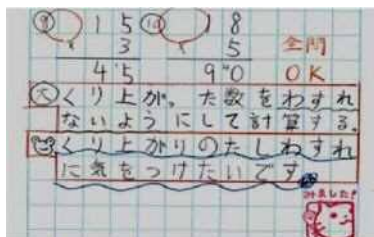 ⑨ 15 ⑩ 18
3 5 全問
45 90 OK
大 くり上がった数をわすれ
ないようにして計算する。
くり上がりのたしわすれ
に気をつけたいです
みました!